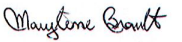 Marylène Brault